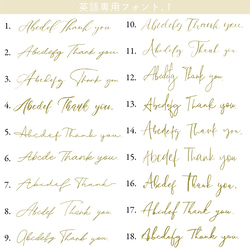 英語専用フォント.1
1. Abcdef Thank you
2. Abcdefg Thank you
3. Abcdefg Thank you
4. Abcdef Thank you.
5. Abcdef Thank you
6. Abcde Thank you
7. Abcdef Thank
8. Abcdef Thank you
9. Abcdefg Thank you
10. Abcdefg Thank you.
11. Abcdefg Thank you
12. Abcdefg Thank you
13. Abcdefg Thank you
14. Abcdefg Thank you
15. Abcdef Thank you
16. Abcdef Thank you,
17. Abcdefg Thank you
18. Abcdefg Thank you